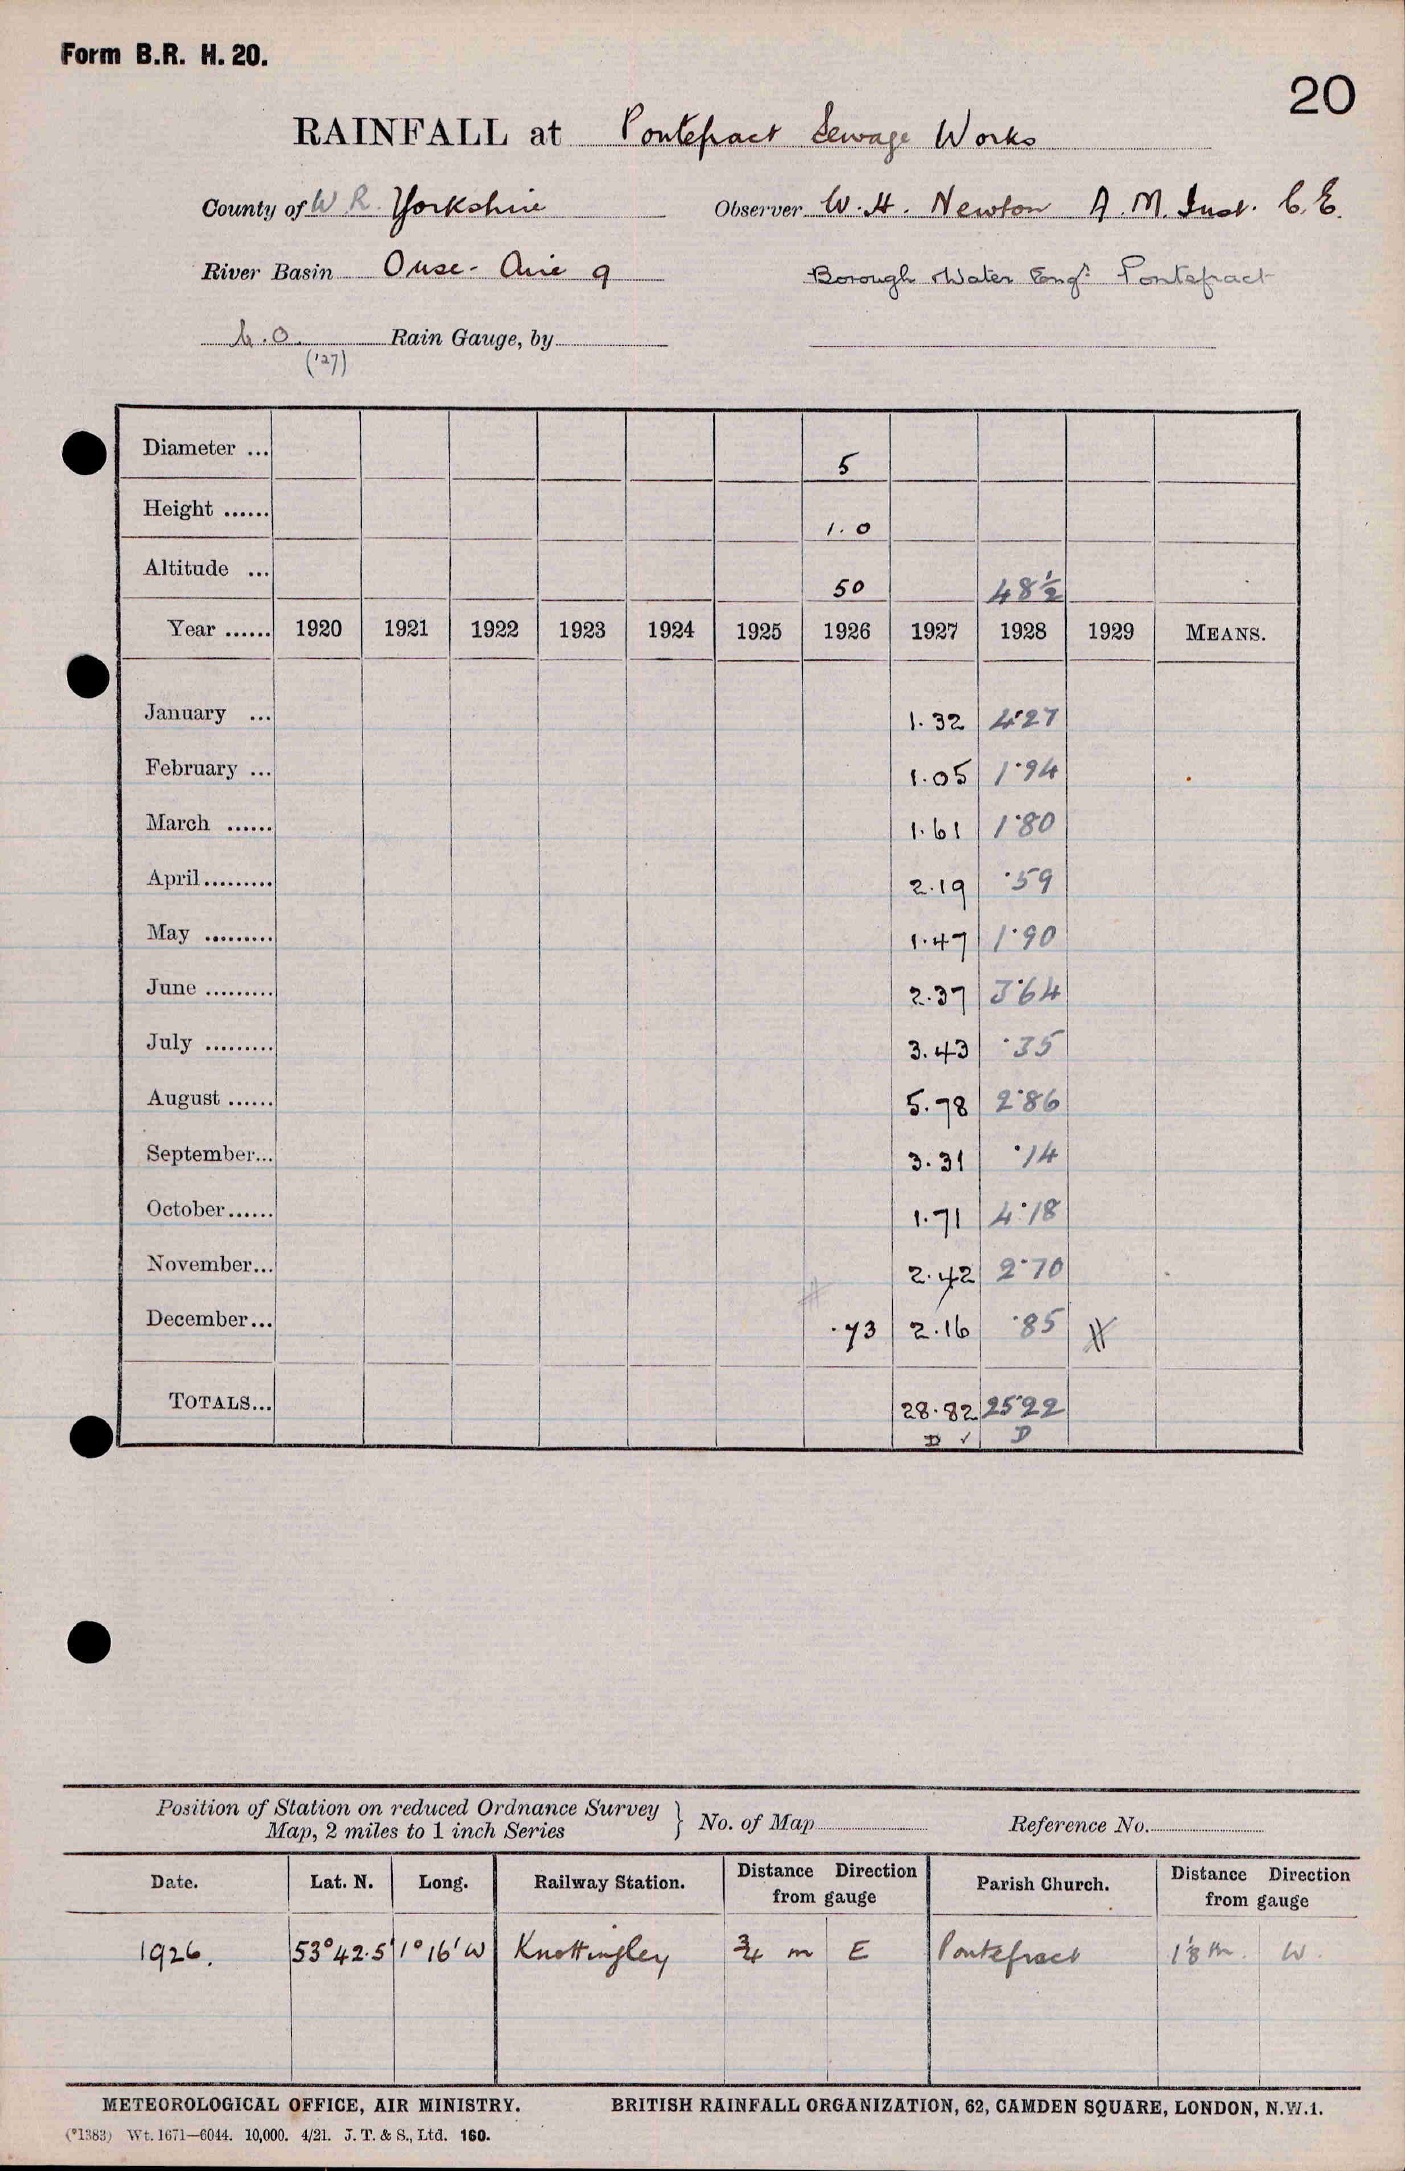 Form B.R. H. 20.
20
RAINFALL at Pontefract Sewage Works
County of W.R. Yorkshire Observer W. H. Newton A. M. Inst. C.E.
River Basin Ouse - Aire 9 Borough Water Engr. Pontefract
Rain Gauge, by
('27)
Diameter ... 5
Height ...... 1.0
Altitude ... 50 48½
Year ...... 1920 1921 1922 1923 1924 1925 1926 1927 1928 1929 MEANS.
January ... 1.32 4.27
February ... 1.05 1.94
March ...... 1.61 1.80
April ......... 2.19 .59
May ......... 1.47 1.90
June ......... 2.37 3.64
July ......... 3.43 .35
August ...... 5.78 2.86
September... 3.31 .14
October ...... 1.71 4.18
November... 2.42 2.70
December... .73 2.16 .85
TOTALS... 28.82 25.22
D ✓ D
Position of Station on reduced Ordnance Survey } No. of Map Reference No.
Map, 2 miles to 1 inch Series
Date. Lat. N. Long. Railway Station. Distance Direction from gauge Parish Church. Distance Direction from gauge
1926. 53°42.5' 1°16'W Knottingley ¾ m E Pontefract 1.8 m. W.
METEOROLOGICAL OFFICE, AIR MINISTRY. BRITISH RAINFALL ORGANIZATION, 62, CAMDEN SQUARE, LONDON, N.W.1.
(*1383) Wt. 1671—6044. 10,000. 4/21. J. T. & S., Ltd. 160.